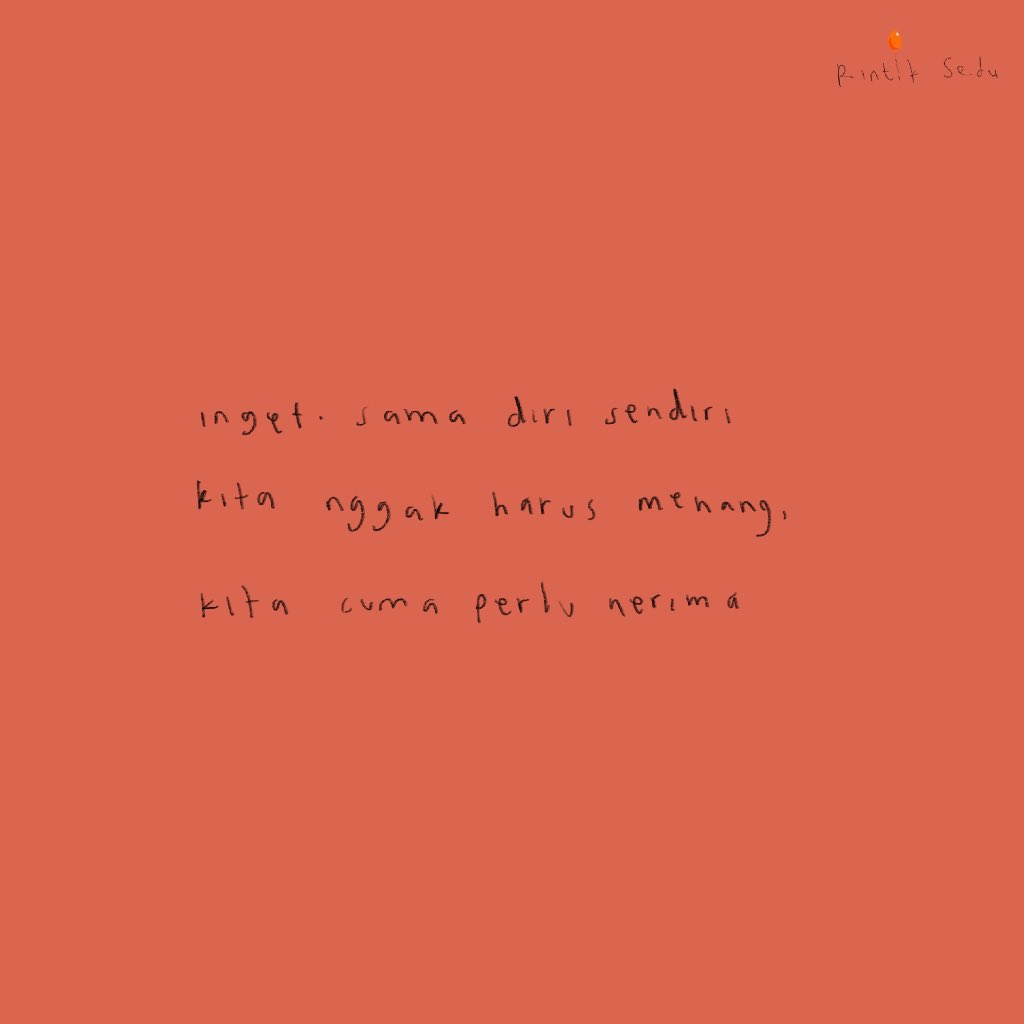 Rintik Sedu
inget. sama diri sendiri
kita nggak harus menang,
kita cuma perlu nerima